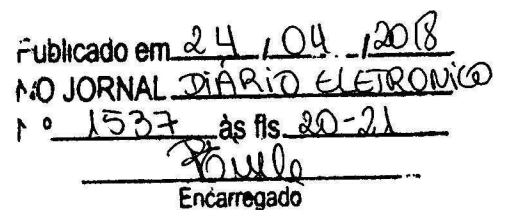 Publicado em 24 / 04 / 2018
NO JORNAL DIÁRIO ELETRONICO
Nº 1537 às fls. 20-21
Encarregado